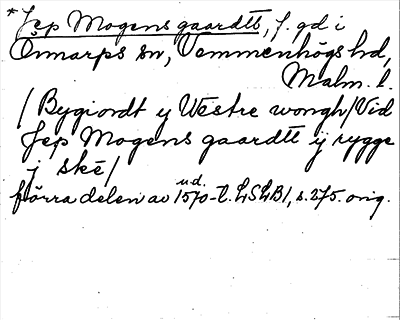 * Jep Mogens gaardtt, f. gd i
Önnarps sn, Vemmenhögs hd,
Malm. l.
/ Bygiordt y Westre wongh / Vid
Jep Mogens gaardtt ÿ rygge
j ske /
förra delen av 1570-t. LSLB1, s. 275. orig.
u.d.